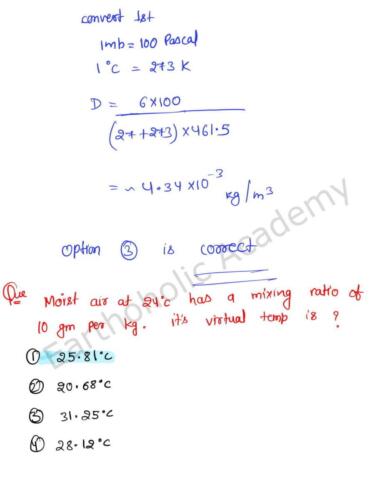 convert 1st
1mb = 100 Pascal
1°C = 273 K
D = 6×100
(27+273) × 461.5
= ~ 4.34 × 10⁻³ kg/m³
Option ③ is correct
Earthoholic Academy
Que Moist air at 24°C has a mixing ratio of
10 gm per kg. it's virtual temp is ?
① 25.81°C
② 20.68°C
③ 31.25°C
④ 28.12°C